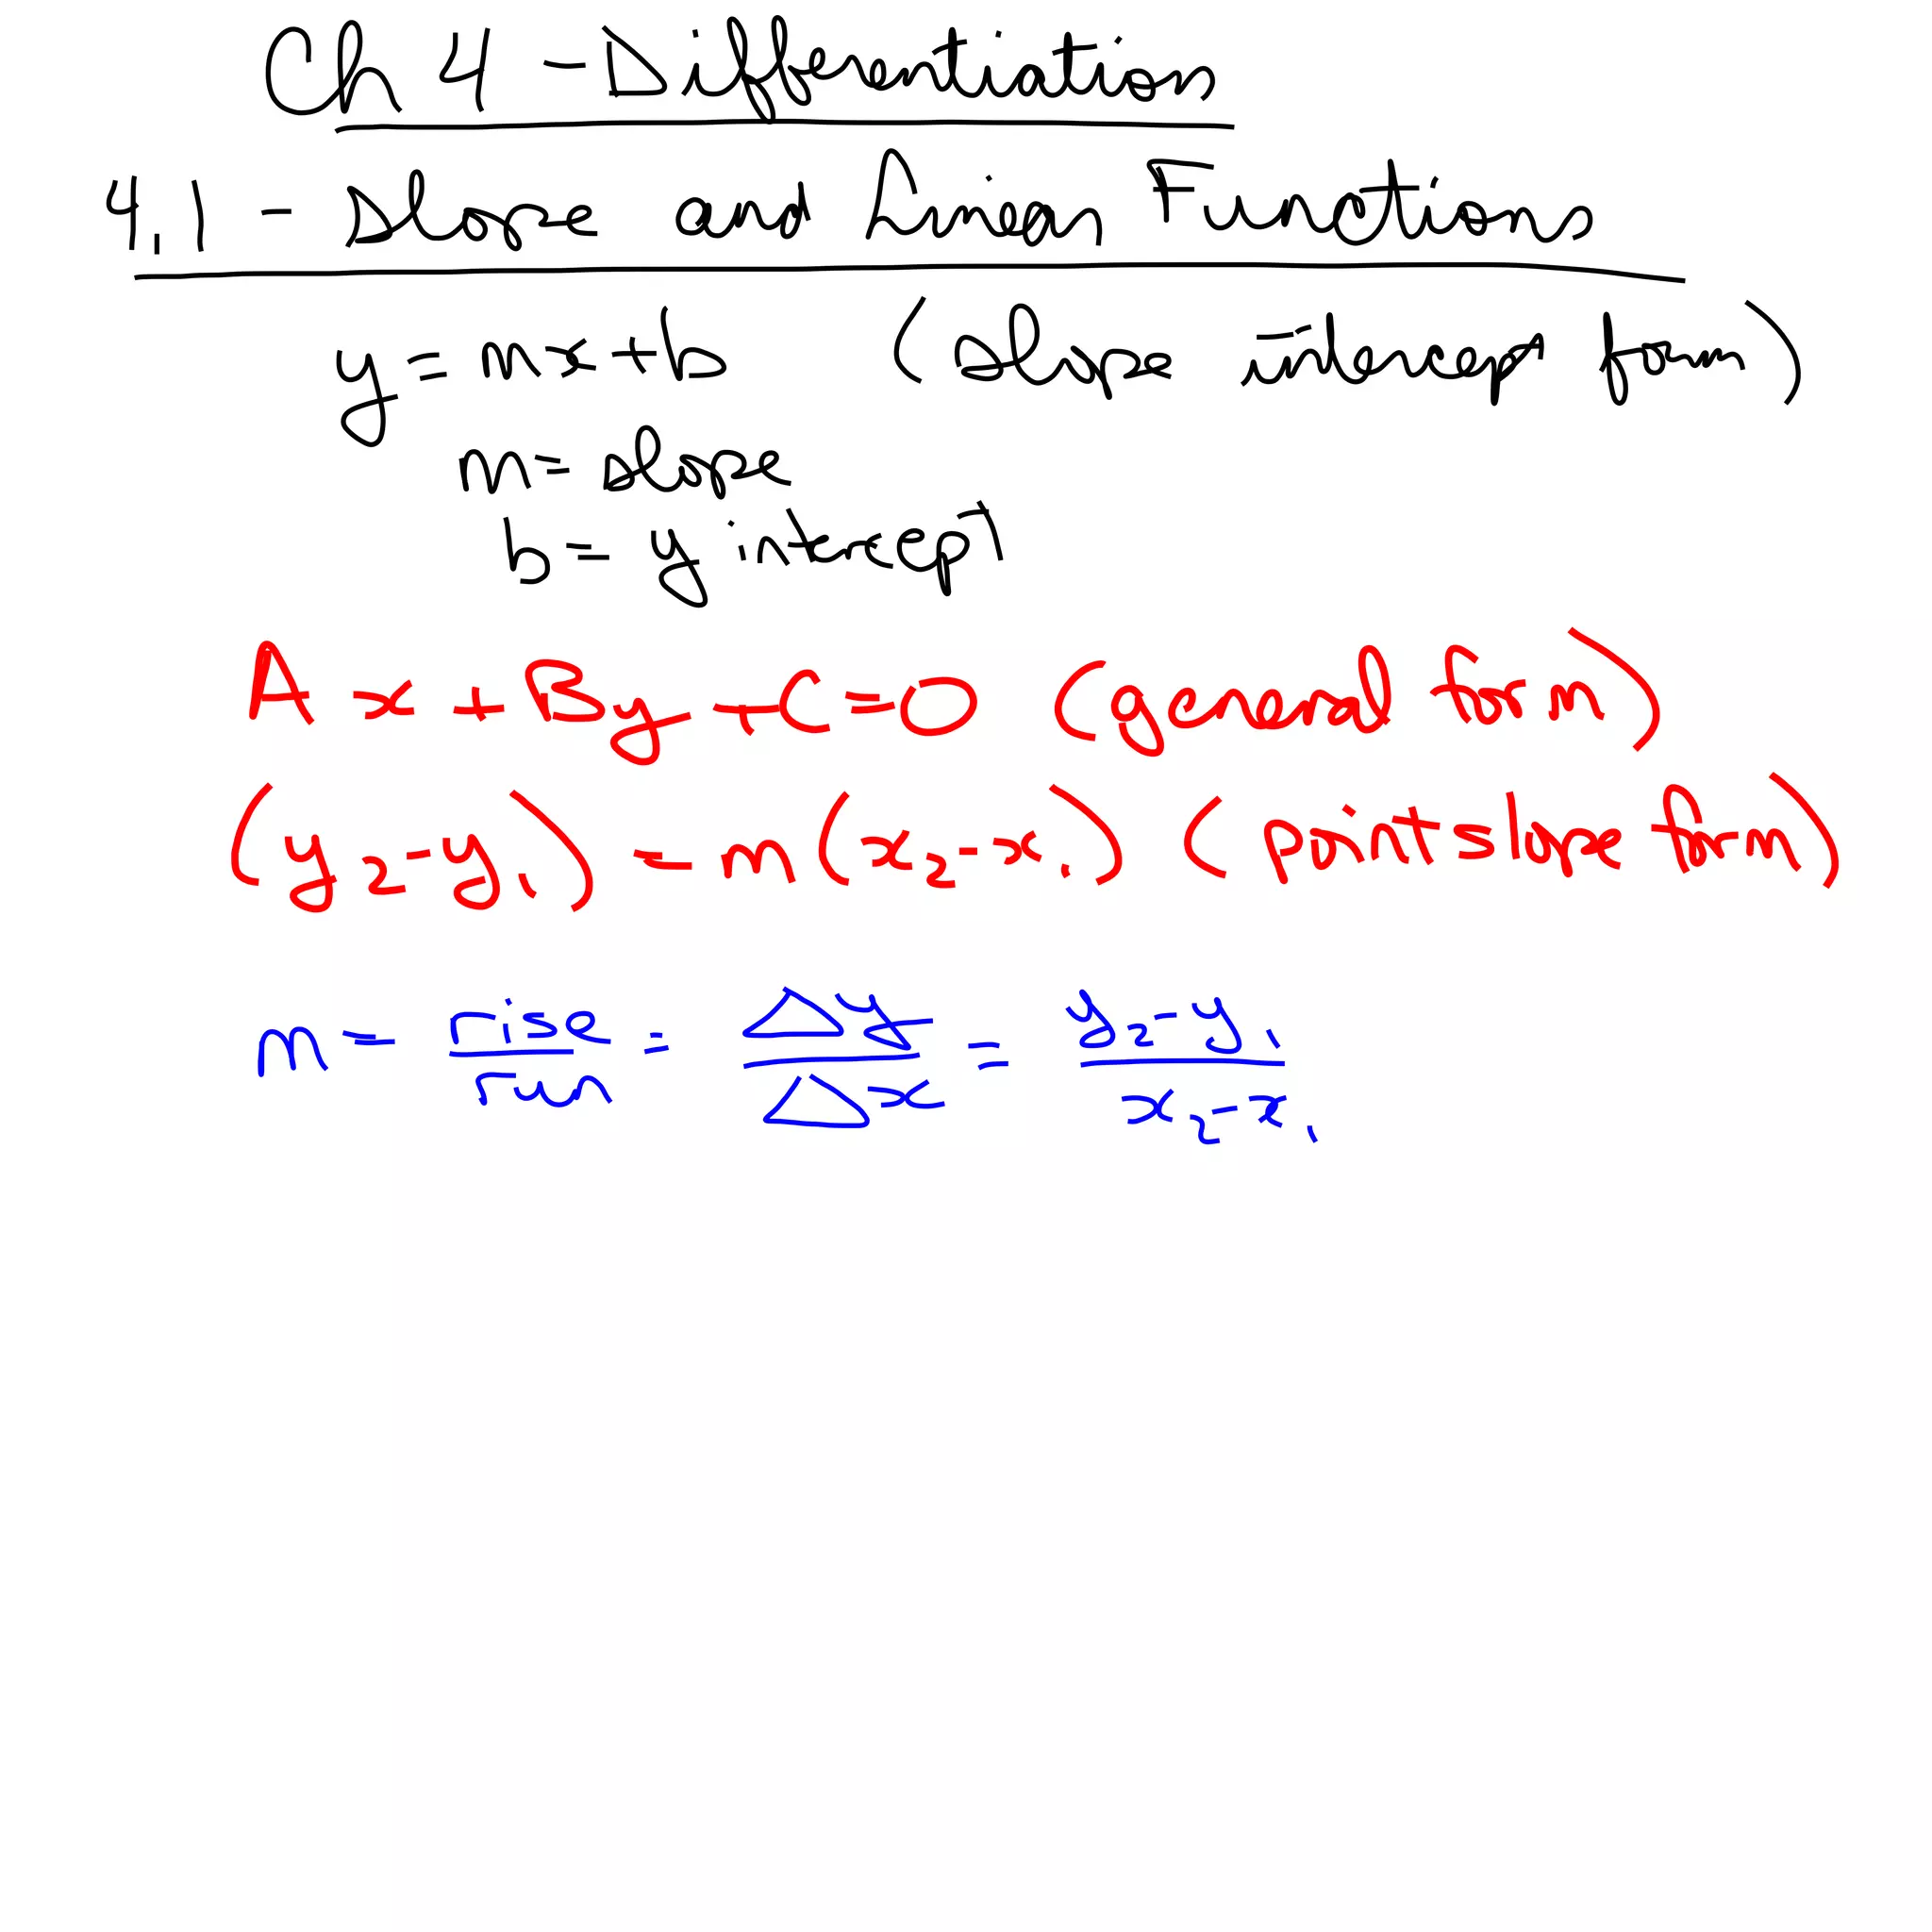 Ch 4 - Differentiation
4.1 - Slope and Linear Functions
y = mx + b (slope intercept form)
m = slope
b = y intercept
Ax + By + C = 0 (general form)
(y₂ - y₁) = m(x₂ - x₁) (point slope form)
m = rise/run = Δy/Δx = y₂ - y₁/x₂ - x₁